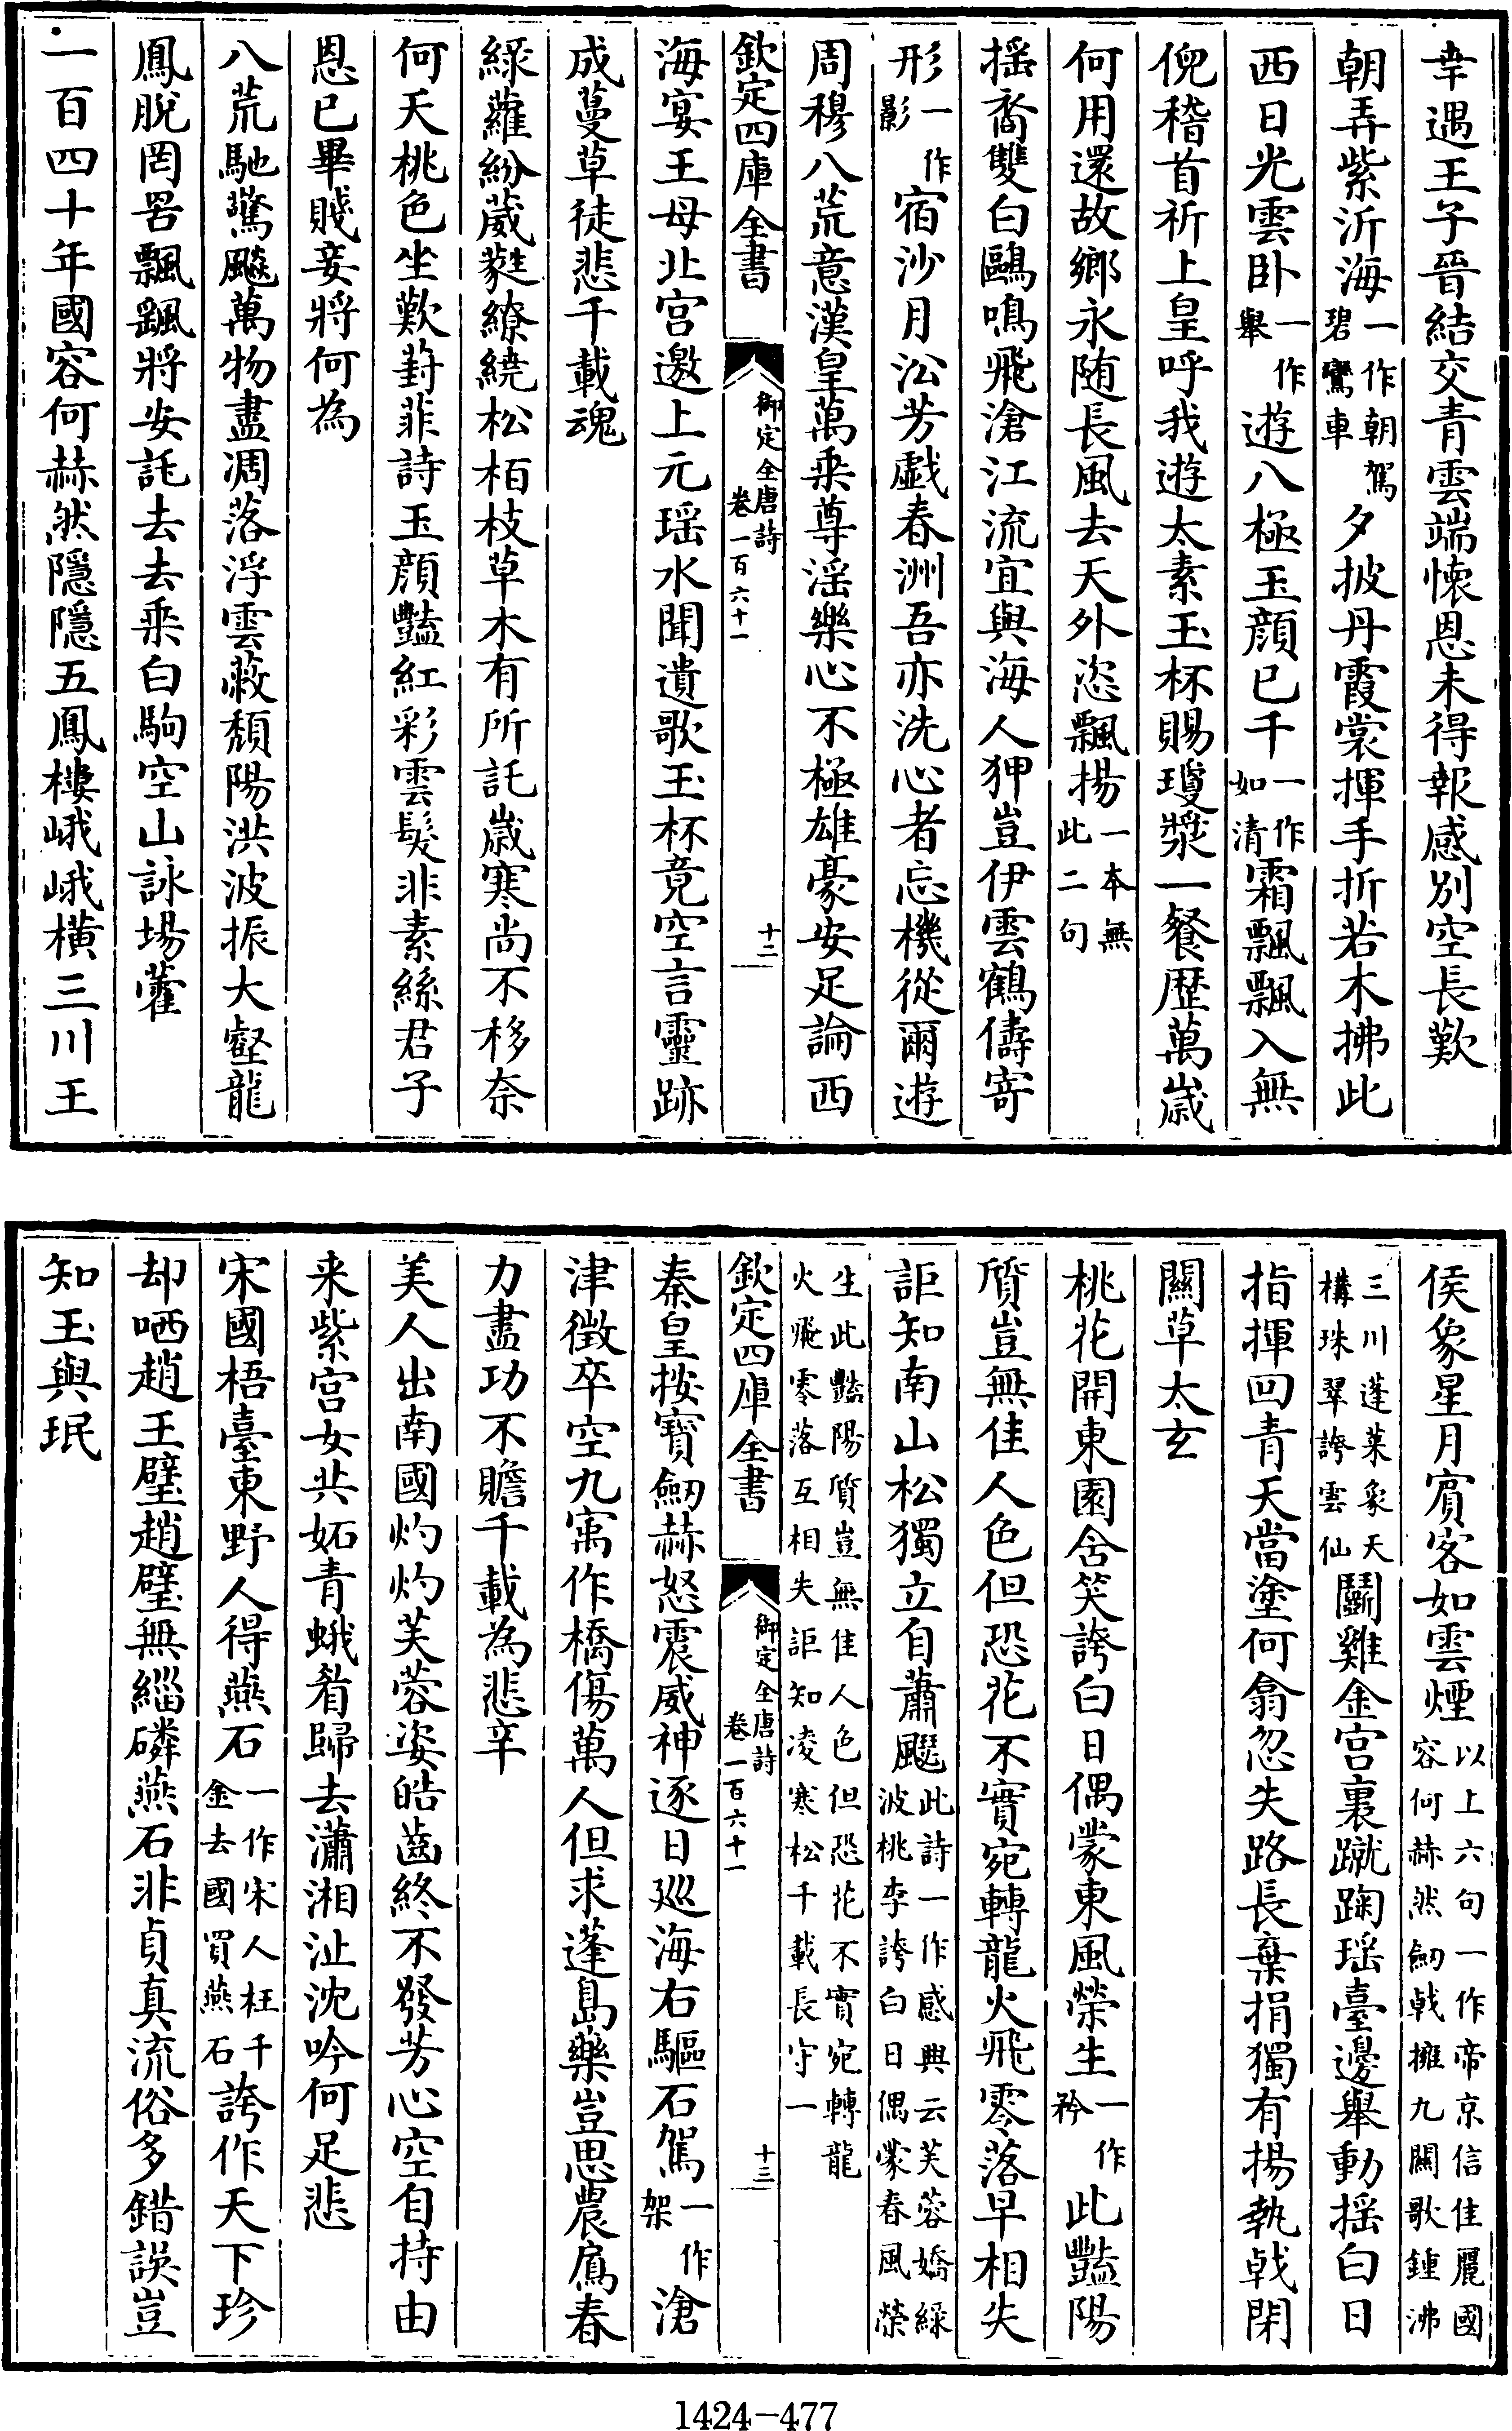 幸遇王子晉結交青雲端懷恩未得報感別空長歎
朝弄紫沂海一作朝駕碧鸞車夕披丹霞裳揮手折若木拂此
西日光雲卧一作舉遊八極玉顔已千一作如清霜飄飄入無
倪稽首祈上皇呼我遊太素玉杯賜瓊漿一餐歴萬歳
何用還故鄉永随長風去天外恣飄揚一本無此二句
揺裔雙白鷗鳴飛滄江流宜與海人狎豈伊雲鶴儔寄
形一作影宿沙月㳂芳戲春洲吾亦洗心者忘機從爾遊
周穆八荒意漢皇萬乘尊淫樂心不極雄豪安足論西
欽定四庫全書
御定全唐詩
卷一百六十一
十二
海宴王母北宮邀上元瑶水聞遺歌玉杯竟空言靈跡
成蔓草徒悲千載魂
緑蘿紛葳蕤繚繞松栢枝草木有所託歲寒尚不移奈
何夭桃色坐歎葑菲詩玉顔豔紅彩雲髮非素絲君子
恩已畢賤妾將何為
八荒馳驚飈萬物盡凋落浮雲蔽頽陽洪波振大壑龍
鳳脫罔罟飄飖將安託去去乘白駒空山詠場藿
一百四十年國容何赫然隱隱五鳳樓峨峨橫三川王
侯象星月賓客如雲煙以上六句一作帝京信佳麗國容何赫然劒戟擁九關歌鍾沸
三川蓬萊象天構珠翠誇雲仙鬭雞金宮裏蹴踘瑶臺邊舉動揺白日
指揮回青天當塗何翕忽失路長棄捐獨有揚執戟閉
關草太玄
桃花開東園含笑誇白日偶蒙東風榮生一作矜此豔陽
質豈無佳人色但恐花不實宛轉龍火飛零落早相失
詎知南山松獨立自蕭飋此詩一作感興云芙蓉嬌綠波桃李誇白日偶蒙春風榮
生此豔陽質豈無佳人色但恐花不實宛轉龍火飛零落互相失詎知凌寒松千載長守一
欽定四庫全書
御定全唐詩
卷一百六十一
十三
秦皇按寳劒赫怒震威神逐日巡海右驅石駕一作架滄
津徵卒空九㝢作橋傷萬人但求蓬島藥豈思農鳸春
力盡功不贍千載為悲辛
美人出南國灼灼芙蓉姿皓齒終不發芳心空自持由
来紫宮女共妬青蛾眉歸去瀟湘沚沈吟何足悲
宋國梧臺東野人得燕石一作宋人枉千金去國買燕石誇作天下珍
却哂趙王璧趙璧無緇磷燕石非貞真流俗多錯誤豈
知玉與珉
1424-477